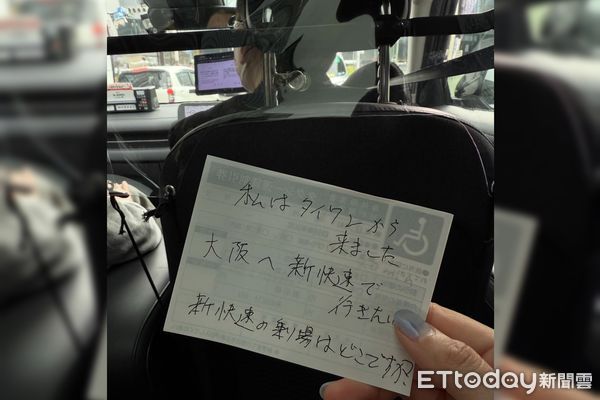 私はタイワンから
来ました
大阪へ新快速で
行きたい
新快速の乗場はどこですか
ETtoday新聞雲